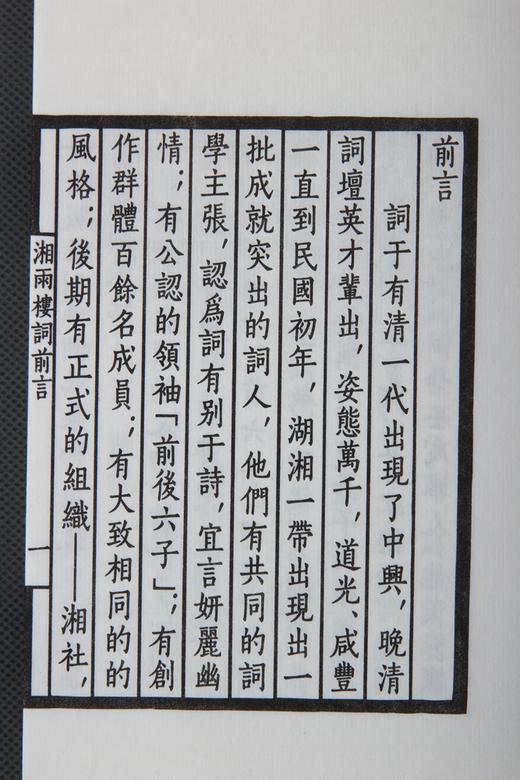 前言
詞于有清一代出現了中興，晚清
詞壇英才輩出，姿態萬千，道光、咸豐
一直到民國初年，湖湘一帶出現出一
批成就突出的詞人，他們有共同的詞
學主張，認爲詞有别于詩，宜言妍麗幽
情；有公認的領袖「前後六子」；有創
作群體百餘名成員；有大致相同的的
風格；後期有正式的組織——湘社，
湘雨樓詞前言
一